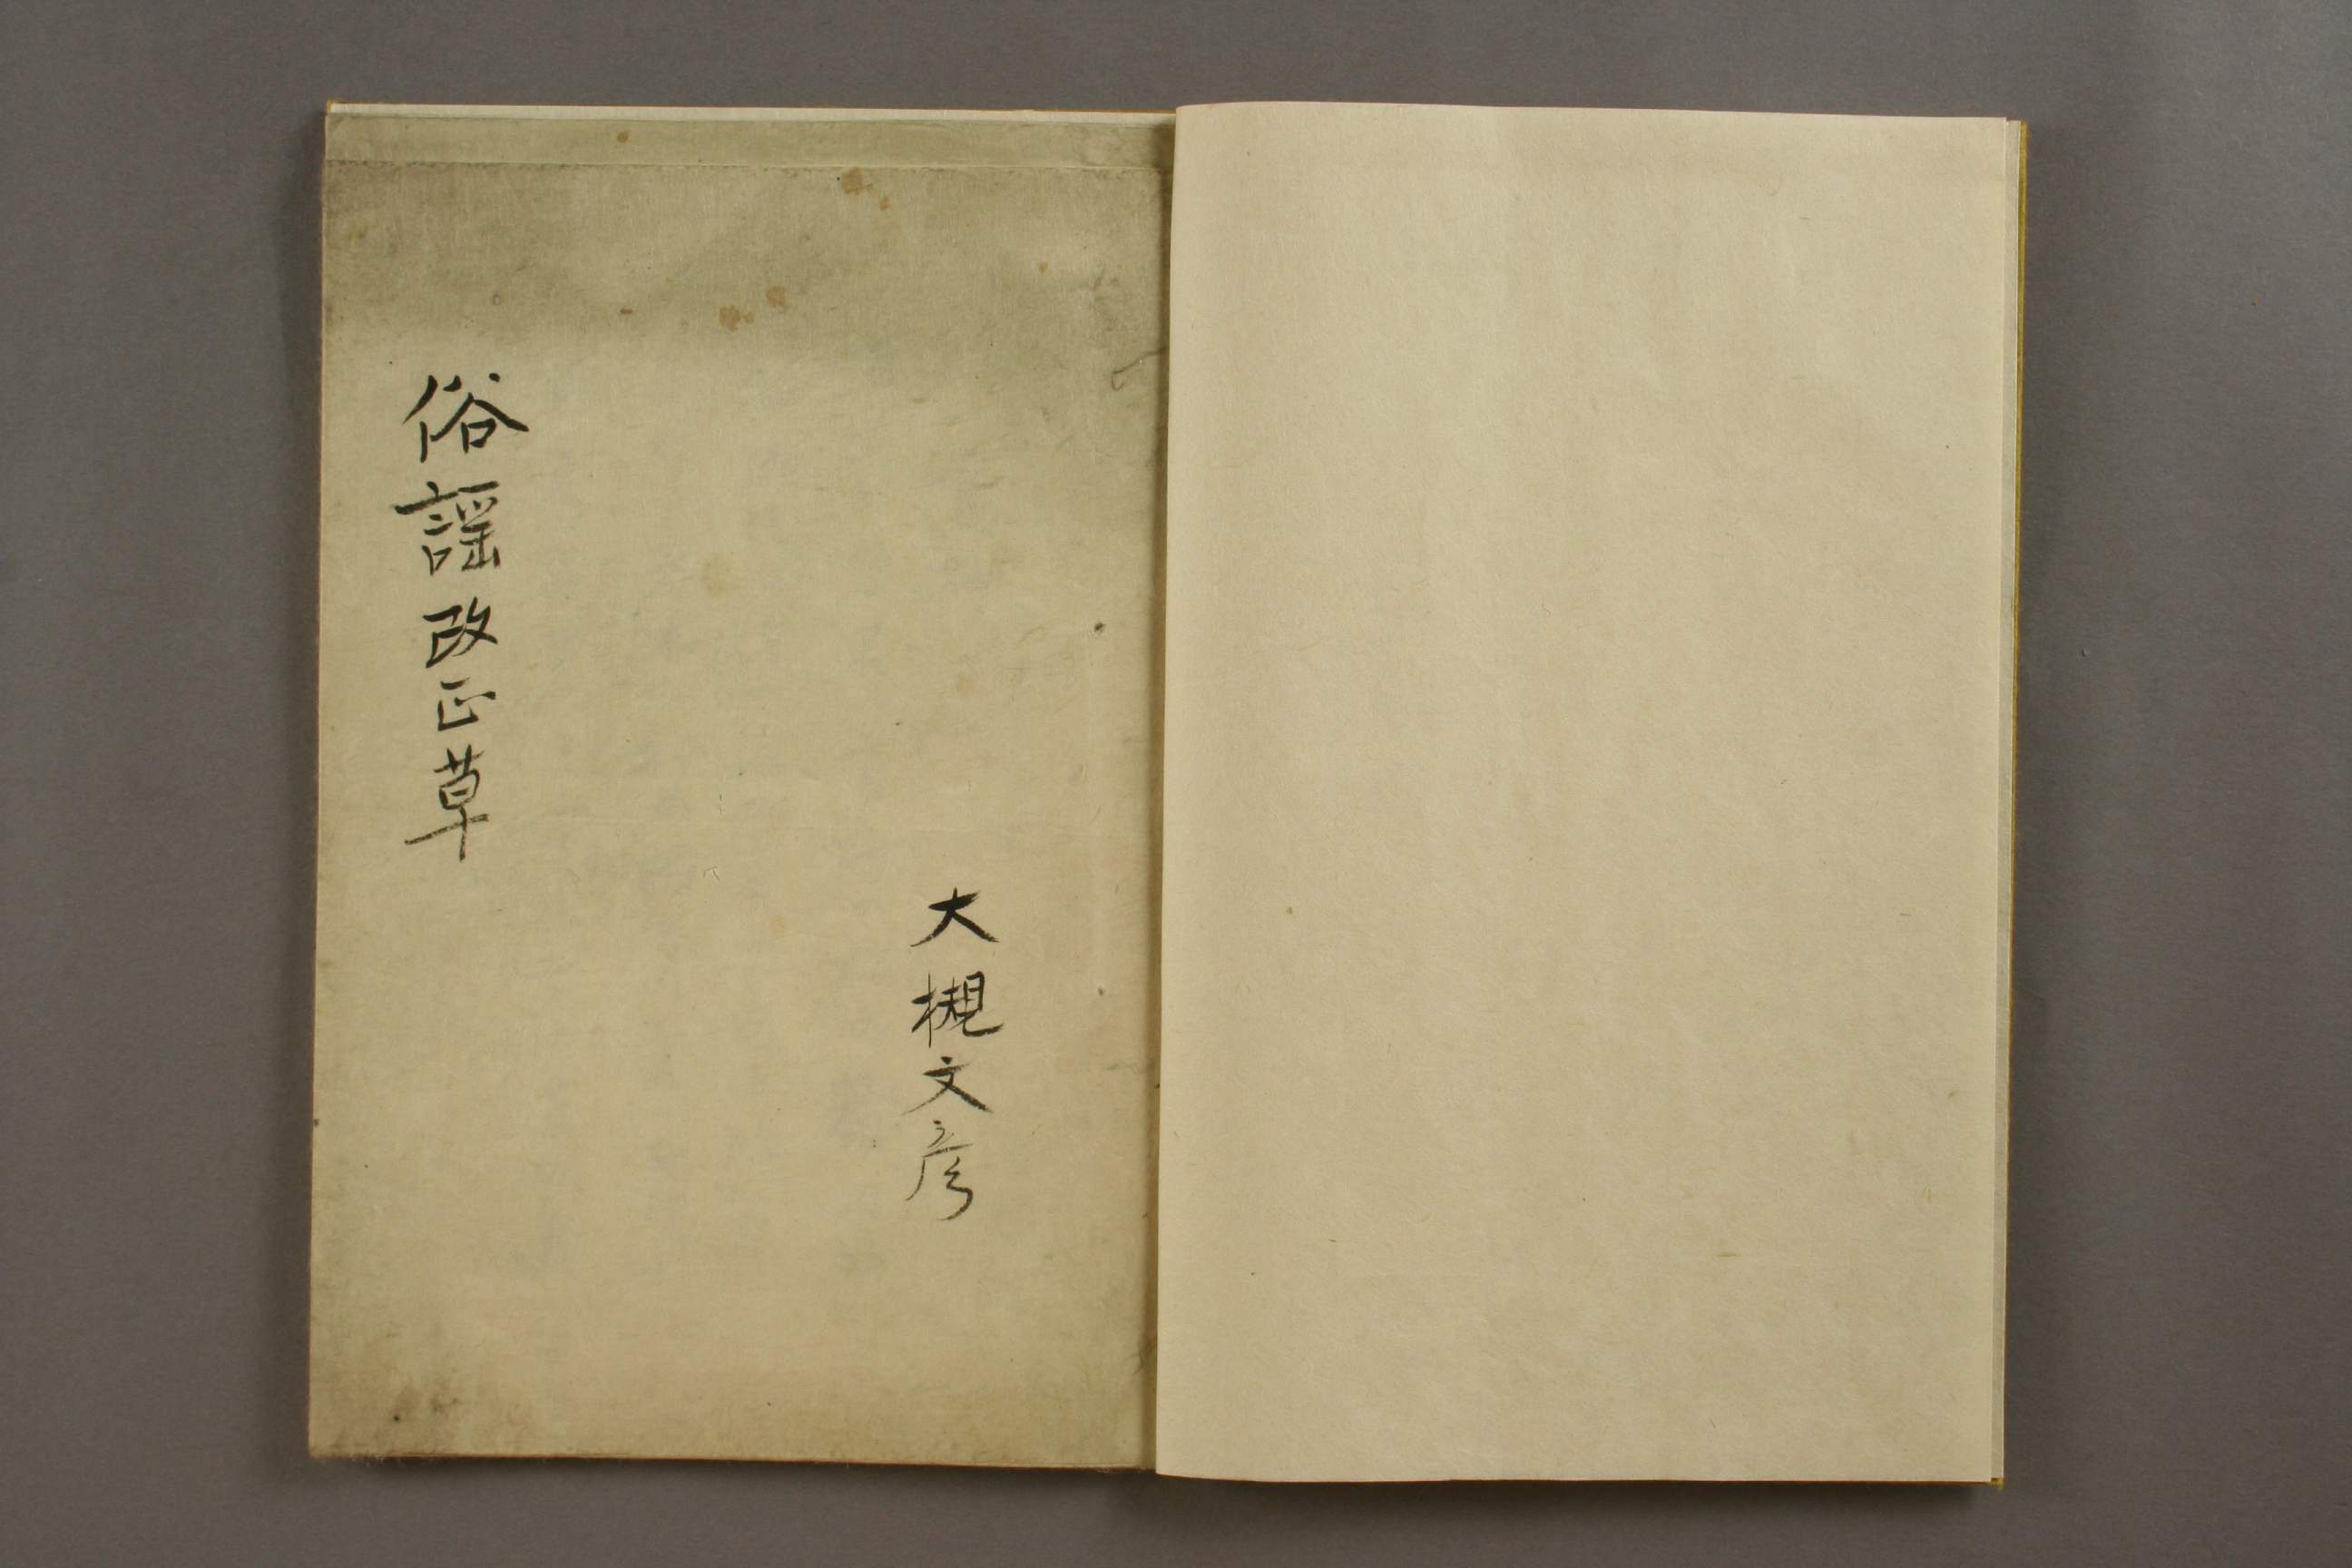 大槻文彦
俗謡改正草